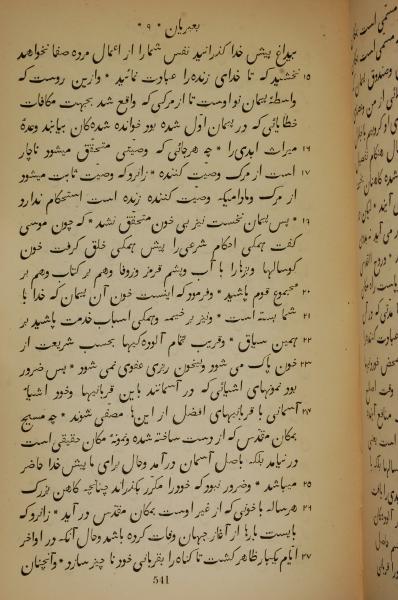 بعبریان * ۹ *
بیداغ پیش خدا گذرانید نفس شما را از اعمال مرده صفا نخواهد
۱۵ بخشید که تا خدای زنده را عبادت نمائید * وازین روست که
واسطهٔ پیمان نو اوست تا از مرکی که واقع شد بجهت مکافات
خطایائی که در پیمان اول شده بود خوانده شده‌کان بیابند وعدهٔ
۱۶ میراث ابدی را * چه هر جائی که وصیتی متحقق میشود ناچار
۱۷ است از مرک وصیت کننده * زانرو که وصیت ثابت میشود
از مرک ومادامیکه وصیت کننده زنده است استحکام ندارد
۱۹ * پس پیمان نخست نیز بی خون متحقق نشد * که چون موسی
کفت همکی احکام شرعی را پیش همکی خلق کرفت خون
کوسالها وبزها را با آب وپشم قرمز وزوفا وهم بر کتاب وهم بر
۲۰ مجموع قوم پاشید * وفرمود که اینست خون آن پیمان که خدا با
۲۱ شما بسته است * ونیز بر خیمه وهمکی اسباب خدمت پاشید بر
۲۲ همین سیاق * وقریب تمام آلوده کیها بحسب شریعت از
۲۳ خون پاک می شود وبیخون ریزی عفوی نمی شود * پس ضرور
بود نمونهای اشیائی که در آسمانند باین قربانیها وخود اشیاء
۲۴ آسمانی با قربانیهای افضل از این‌ها مصفی شوند * چه مسیح
بمکان مقدس که از دست ساخته شده ونمونهٔ مکان حقیقی است
در نیامد بلکه باصل آسمان در آمد وحال برای ما پیش خدا حاضر
۲۵ میباشد * وضرور نبود که خود را مکرر بکذراند چنانچه کاهن بزرک
۲۶ هر ساله با خونی که از غیر اوست بمکان مقدس در آید * زانرو که
بایست بارها از آغاز جهان وفات کرده باشد وحال آنکه در اواخر
۲۷ ایام یکبار ظاهر کشت تا کناه را بقربانی خود نا چیز سازد * وآنچنان
541